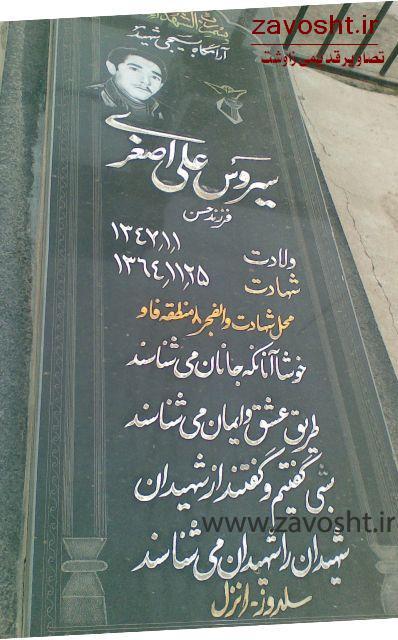 zavosht.ir
تصاویر قدیمی زاوشت
بسم رب الشهداء
آرامگاه بسیجی شهید
سیروس علی اصغری
فرزند حسن
ولادت ۱۳۴۷,۱,۱
شهادت ۱۳۶۴,۱۱,۲۵
محل شهادت والفجر ۸ منطقه فاو
خوشا آنانکه جانان می شناسند
طریق عشق و ایمان می شناسند
بسی گفتیم و گفتند از شهیدان
www.zavosht.ir
شهیدان را شهیدان می شناسند